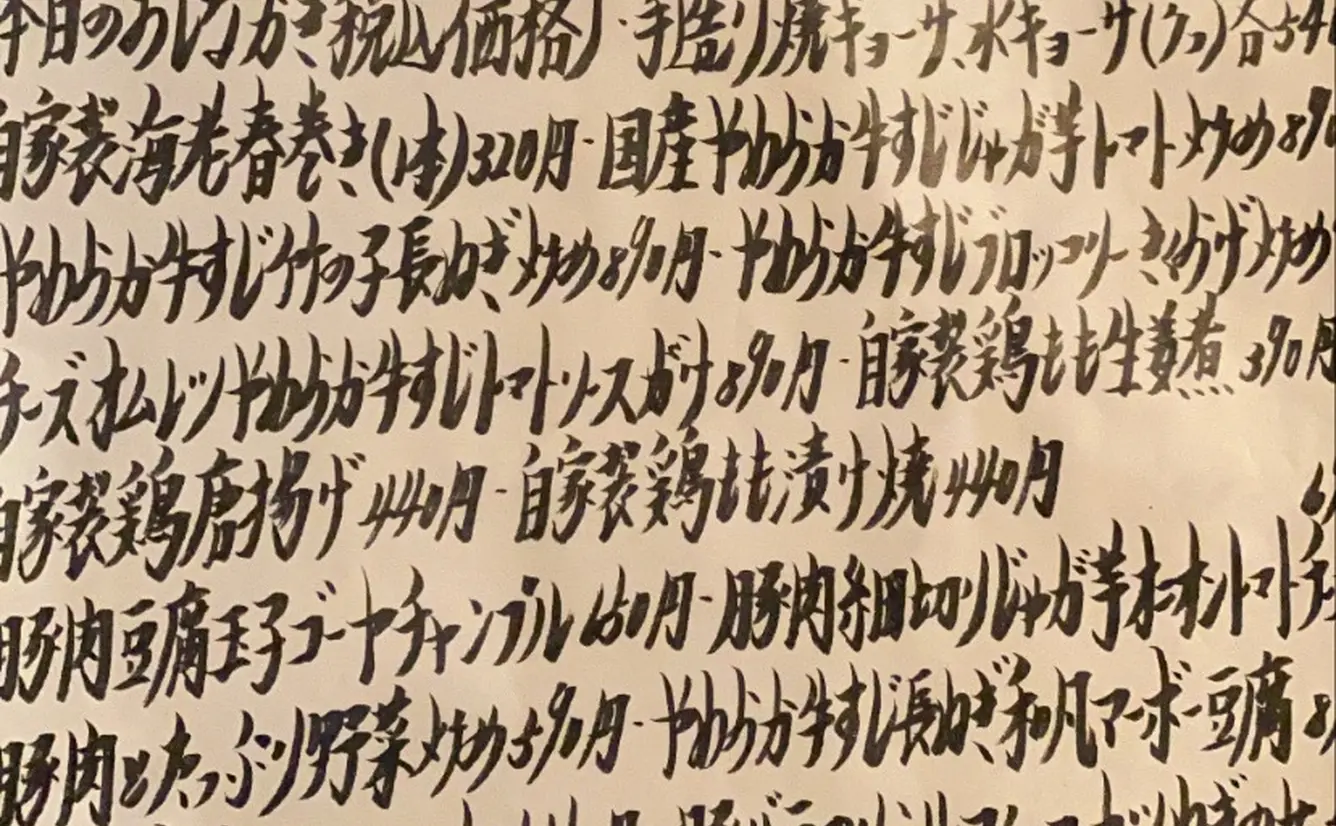 本日のおしながき(税込価格)・手造り焼ギョーサ、水ギョーサ(5コ)各540
自家製海老春巻き(1本)320円・国産やわらか牛すじじゃが芋トマト炒め890
やわらか牛すじ竹の子長ねぎ炒め890円・やわらか牛すじブロッコリーきくらげ炒め
チーズオムレツやわらか牛すじトマトソースがけ890円・自家製鶏もも生姜煮390円
自家製鶏唐揚げ440円・自家製鶏もも漬け焼440円
豚肉豆腐玉子ゴーヤチャンプル650円・豚肉細切りじゃが芋オニオントマトチ
豚肉とたっぷり野菜炒め590円・やわらか牛すじ長ねぎ和風マーボー豆腐8